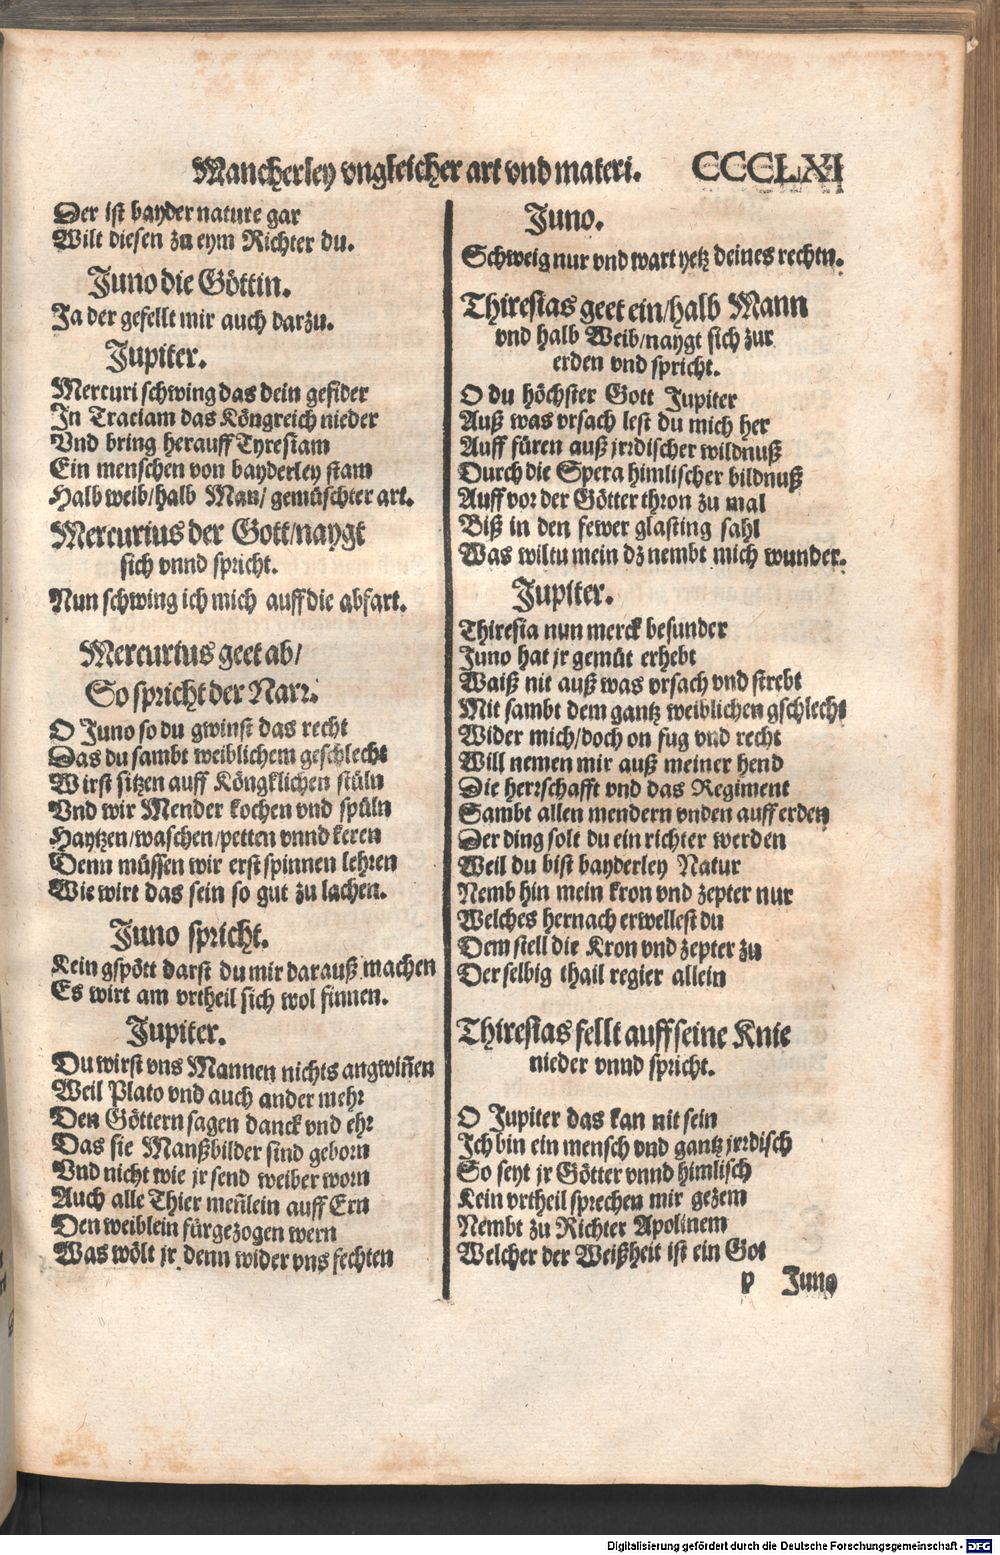 Mancherley vngleicher art vnd materi. CCCCLXI
Der ist bayder nature gar
Wilt diesen zu eym Richter du.
Juno die Göttin.
Ja der gefellt mir auch darzu.
Jupiter.
Mercuri schwing das dein gefider
In Traciam das Köngreich nieder
Vnd bring herauff Tyrestam
Ein menschen von bayderley stam
Halb weib/halb Man/ gemüschter art.
Mercurius der Gott/naygt
sich vnnd spricht.
Nun schwing ich mich auff die abfart.
Mercurius geet ab/
So spricht der Narr.
O Juno so du gwinst das recht
Das du sambt weiblichem geschlecht
Wirst sitzen auff Köngklichen stüln
Vnd wir Mender kochen vnd spüln
Haytzen/waschen/petten vnnd keren
Denn müssen wir erst spinnen lehren
Wie wirt das sein so gut zu lachen.
Juno spricht.
Kein gspött darst du mir darauß machen
Es wirt am vrtheil sich wol finnen.
Jupiter.
Du wirst vns Mannen nichts angwiñen
Weil Plato vnd auch ander mehr
Den Göttern sagen danck vnd ehr
Das sie Manßbilder sind geborn
Vnd nicht wie jr send weiber worn
Auch alle Thier meñlein auff Ern
Den weiblein fürgezogen wern
Was wölt jr denn wider vns fechten
Juno.
Schweig nur vnd wart yetz deines rechtn.
Thiresias geet ein/halb Mann
vnd halb Weib/naygt sich zur
erden vnd spricht.
O du höchster Gott Jupiter
Auß was vrsach lest du mich her
Auff füren auß jrrdischer wildnuß
Durch die Spera himlischer bildnuß
Auff vor der Götter thron zu mal
Biß in den fewer glasting sahl
Was wiltu mein dz nembt mich wunder.
Jupiter.
Thiresia nun merck besunder
Juno hat jr gemüt erhebt
Waiß nit auß was vrsach vnd strebt
Mit sambt dem gantz weiblichen gschlecht
Wider mich/doch on fug vnd recht
Will nemen mir auß meiner hend
Die herrschafft vnd das Regiment
Sambt allen mendern vnden auff erden
Der ding solt du ein richter werden
Weil du bist bayderley Natur
Nemb hin mein kron vnd zepter nur
Welches hernach erwellest du
Dem stell die Kron vnd zepter zu
Der selbig thail regier allein
Thiresias fellt auff seine Knie
nieder vnnd spricht.
O Jupiter das kan nit sein
Ich bin ein mensch vnd gantz jrrdisch
So seyt jr Götter vnnd himlisch
Kein vrtheil sprechen mir gezem
Nembt zu Richter Apolinem
Welcher der Weißheit ist ein Got
p Juno
Digitalisierung gefördert durch die Deutsche Forschungsgemeinschaft - DFG